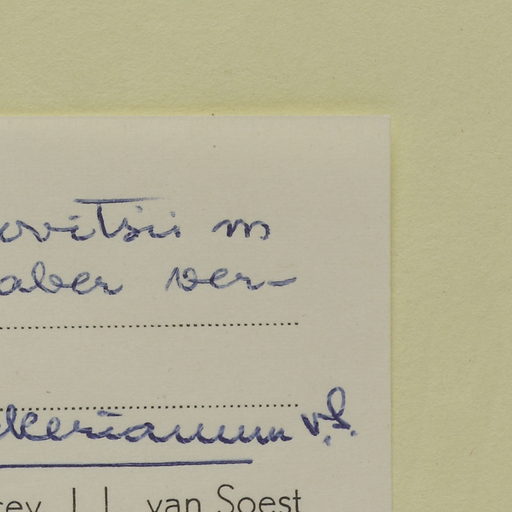 ovitsii m
aber ver-
kerianum v.S.
cey. J. L. van Soest